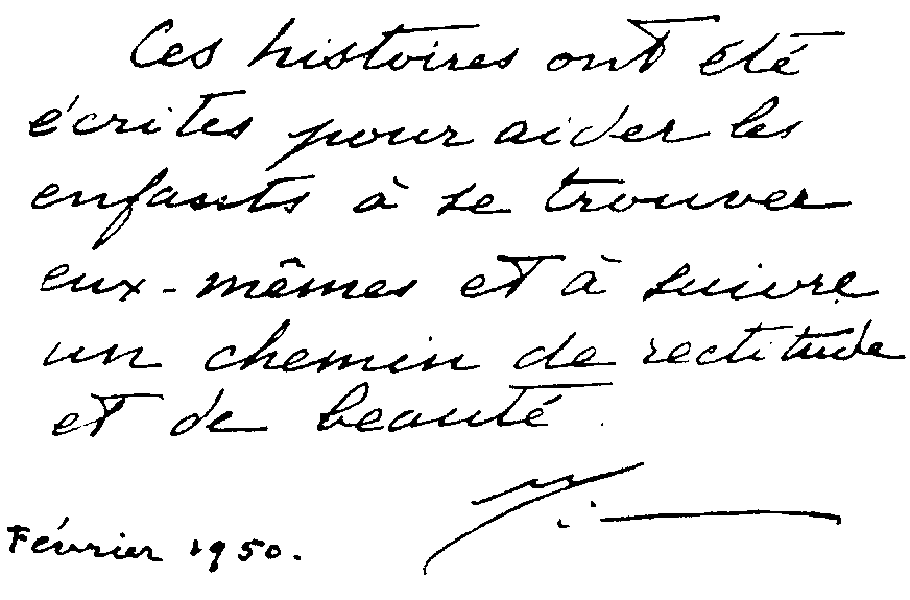 Ces histoires ont été
écrites pour aider les
enfants à se trouver
eux-mêmes et à suivre
un chemin de rectitude
et de beauté.
Février 1950.